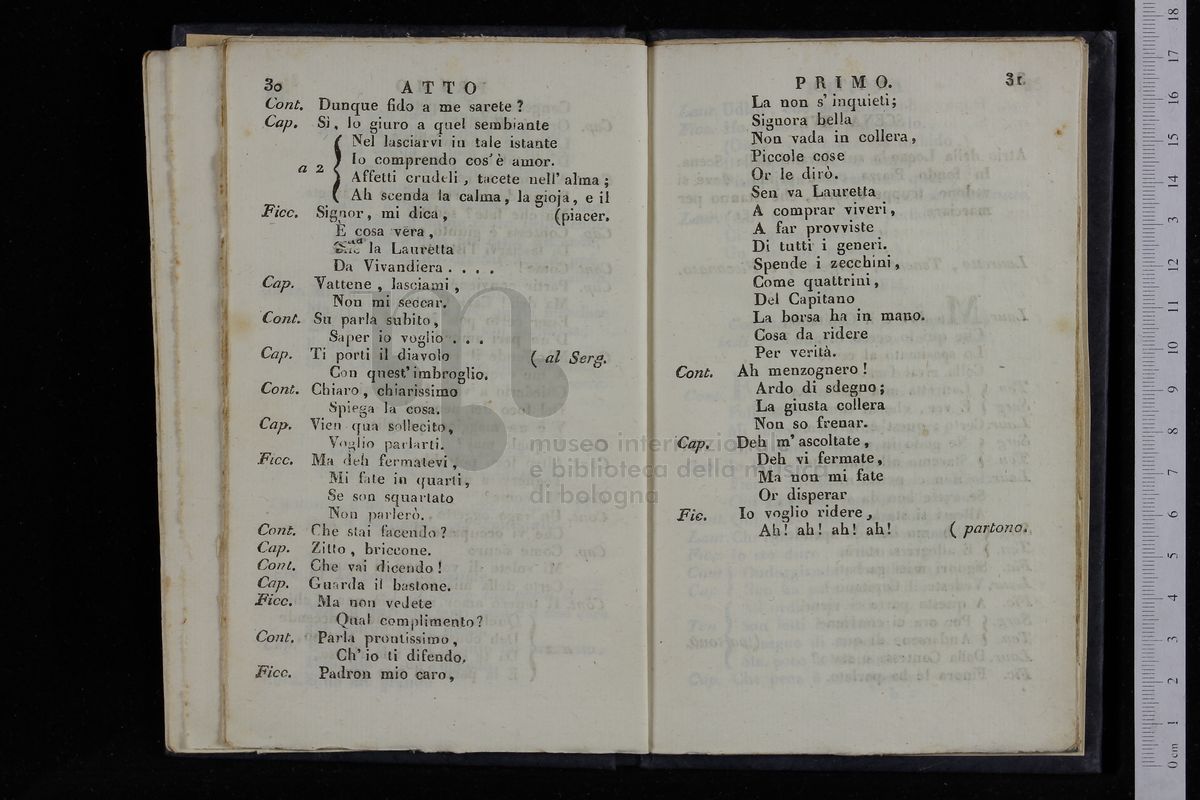 30 ATTO
Cont. Dunque fido a me sarete?
Cap. Sì, lo giuro a quel sembiante
Nel lasciarvi in tale istante
a 2 Io comprendo cos'è amor.
Affetti crudeli, tacete nell'alma;
Ah scenda la calma, la gioja, e il
(piacer.
Ficc. Signor, mi dica,
È cosa vera,
la Lauretta
Da Vivandiera....
Cap. Vattene, lasciami,
Non mi seccar.
Cont. Su parla subito,
Saper io voglio...
Cap. Ti porti il diavolo (al Serg.
Con quest'imbroglio.
Cont. Chiaro, chiarissimo
Spiega la cosa.
Cap. Vien qua sollecito,
Voglio parlarti.
Ficc. Ma deh fermatevi,
Mi fate in quarti,
Se son squartato
Non parlerò.
Cont. Che stai facendo?
Cap. Zitto, briccone.
Cont. Che vai dicendo!
Cap. Guarda il bastone.
Ficc. Ma non vedete
Qual complimento?
Cont. Parla prontissimo,
Ch'io ti difendo.
Ficc. Padron mio caro,
PRIMO. 31
La non s'inquieti;
Signora bella
Non vada in collera,
Piccole cose
Or le dirò.
Sen va Lauretta
A comprar viveri,
A far provviste
Di tutti i generi.
Spende i zecchini,
Come quattrini,
Del Capitano
La borsa ha in mano.
Cosa da ridere
Per verità.
Cont. Ah menzognero!
Ardo di sdegno;
La giusta collera
Non so frenar.
Cap. Deh m'ascoltate,
Deh vi fermate,
Ma non mi fate
Or disperar
Fic. Io voglio ridere,
Ah! ah! ah! ah! (partono.
museo internazionale
e biblioteca della musica
di bologna
0 cm 1 2 3 4 5 6 7 8 9 10 11 12 13 14 15 16 17 18